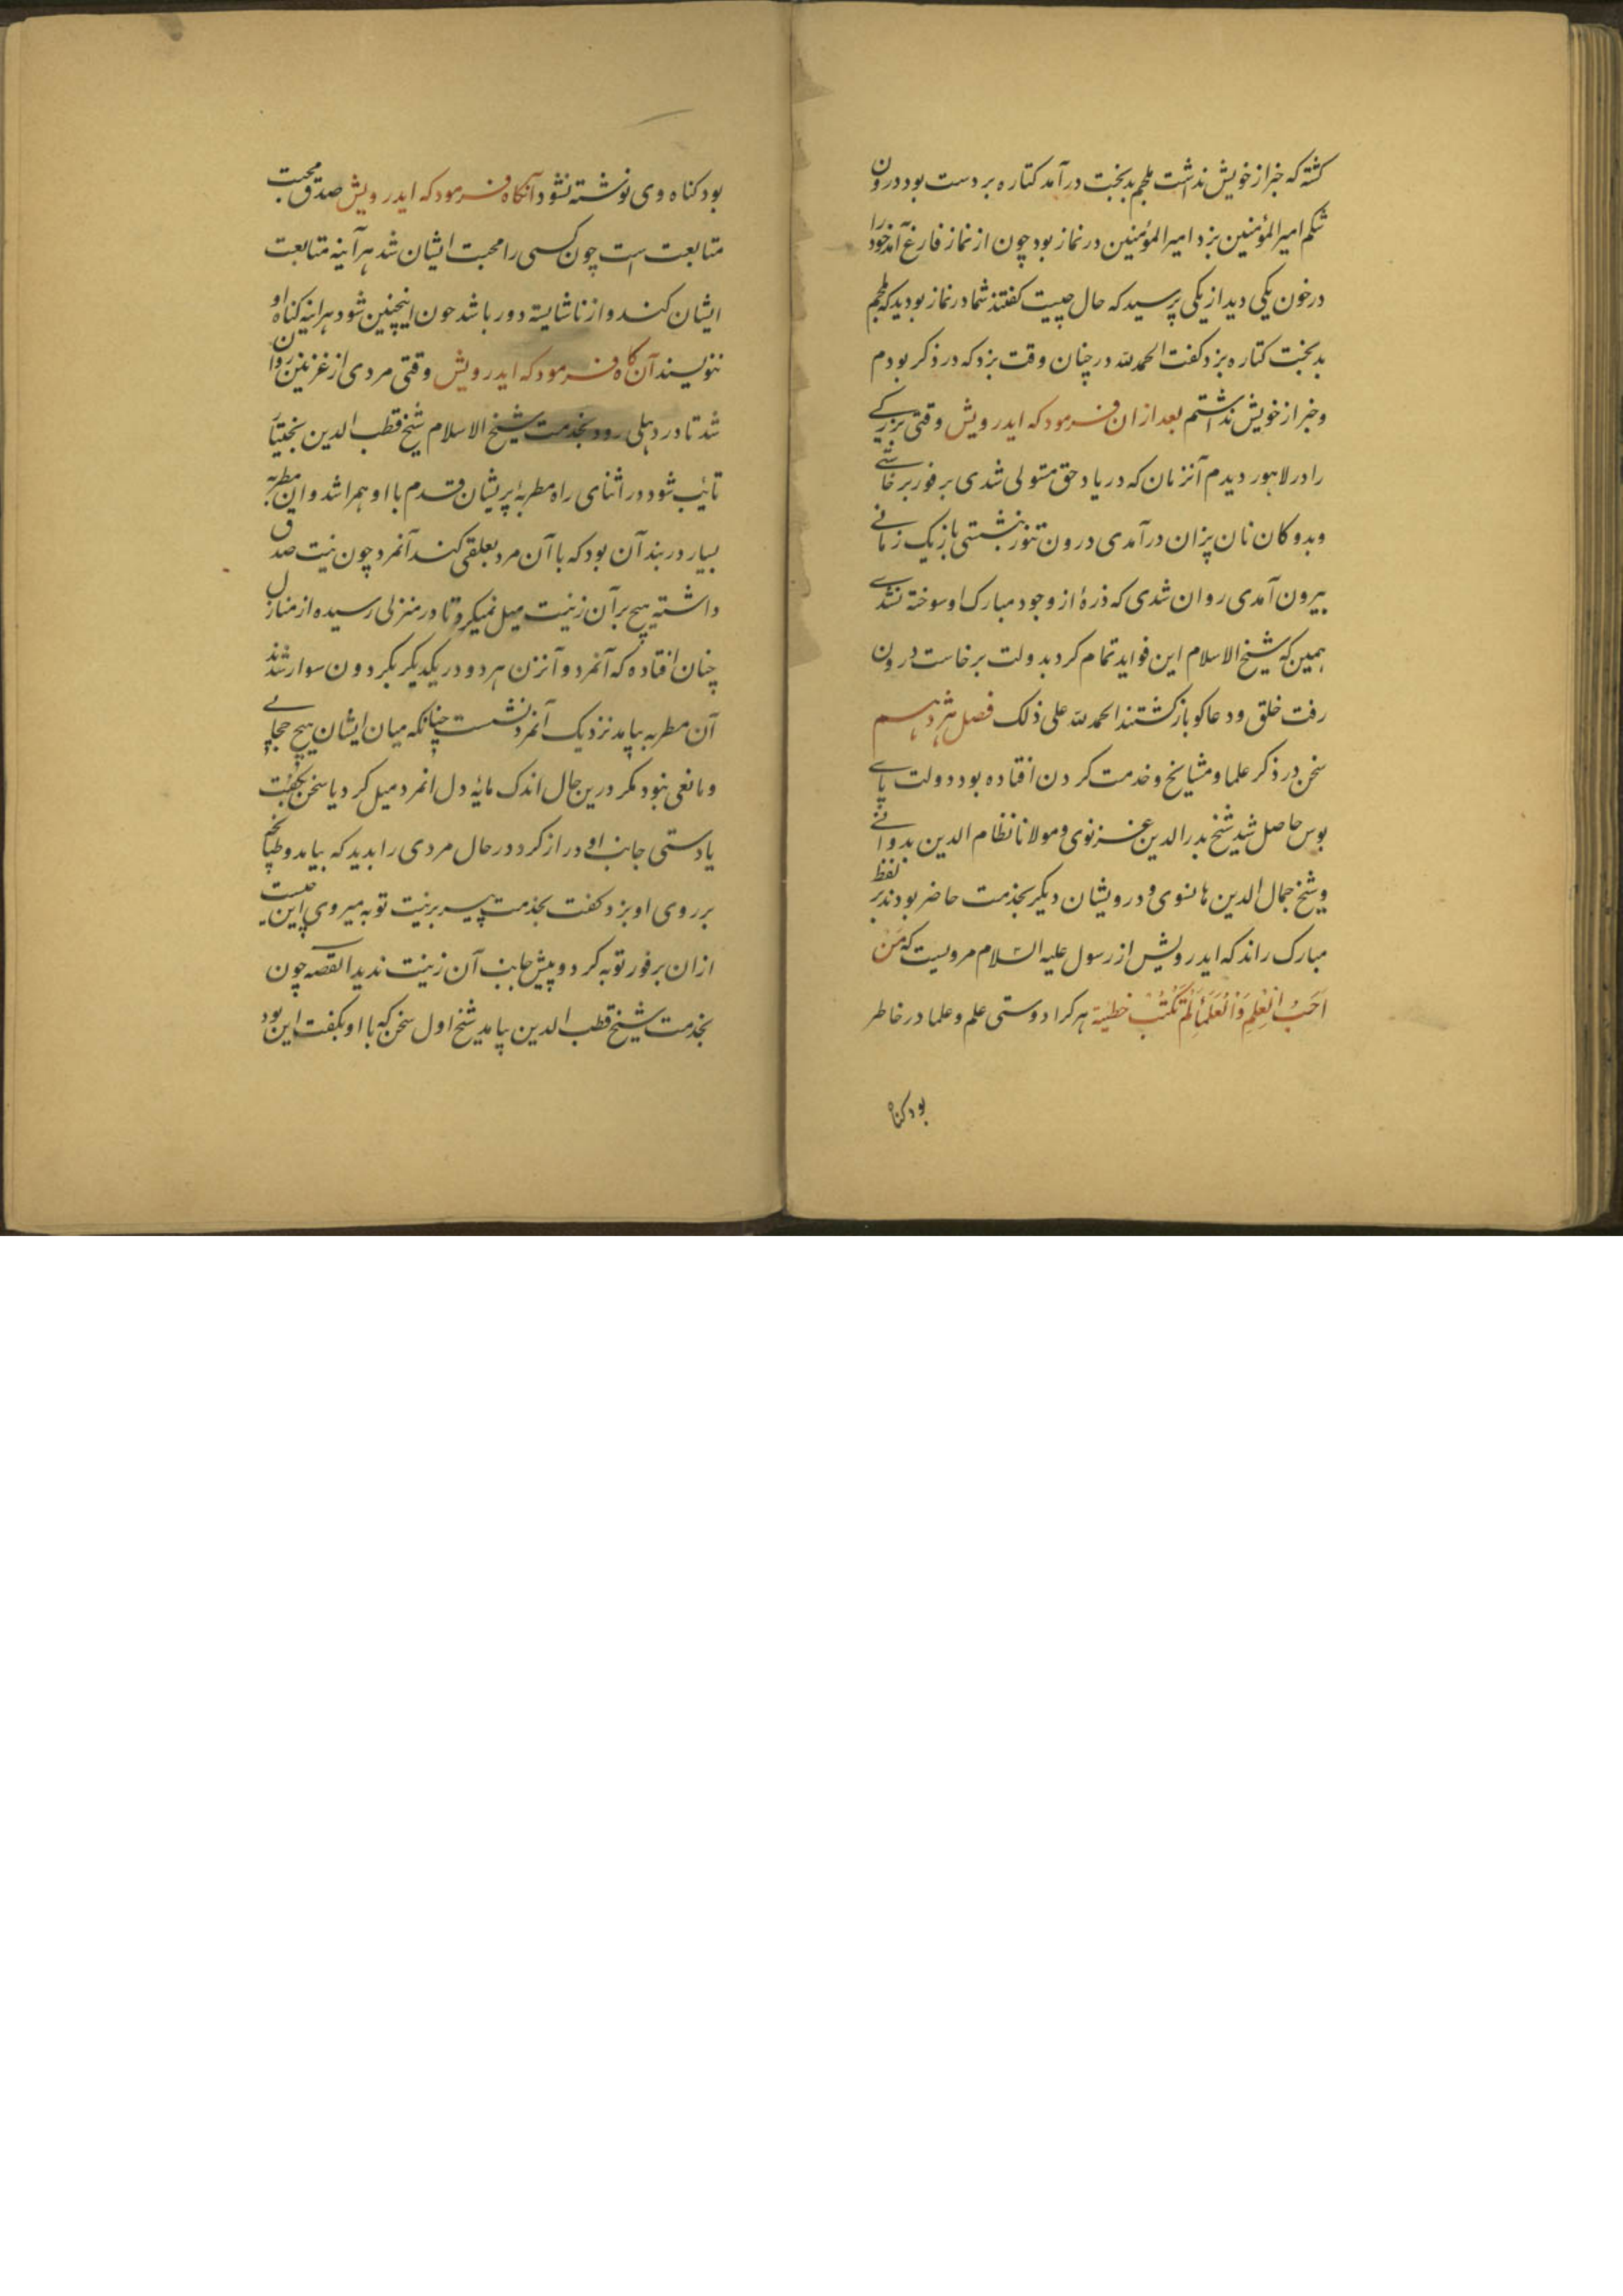 گشته که خبر از خویش نداشت ملجم بدبخت درآمد کتاره بر دست بود درون
شکم امیرالمؤمنین بزد امیرالمؤمنین در نماز بود چون از نماز فارغ آمد خود را
در خون یکی دید از یکی پرسید که حال چیست کفتند شما در نماز بودید که ملجم
بدبخت کتاره بزد کفت الحمدلله در چنان وقت بزد که در ذکر بودم
و خبر از خویش نداشتم بعد ازان فرمود که ایدرویش وقتی بزرکے
را در لاهور دیدم آنزمان که در یاد حق متولی شدی بر فور برخاستے
و بدوکان نان پزان درآمدی درون تنور بنشستی باز یک زمانے
بیرون آمدی روان شدی که ذرهٔ از وجود مبارک او سوخته نشدے
همین که شیخ الاسلام این فواید تمام کرد بدولت برخاست درون
رفت خلق و دعاکو بازکشتند الحمدلله علی ذلک فصل هژدهم
سخن در ذکر علما و مشایخ و خدمت کردن افتاده بود دولت پاے
بوس حاصل شد شیخ بدرالدین غزنوی و مولانا نظام الدین بدوانے
و شیخ جمال الدین هانسوی و درویشان دیکر بخدمت حاضر بودند بر لفظ
مبارک راند که ایدرویش از رسول علیه السلام مرویست که مَن
اَحَبَّ الْعِلمَ وَالْعُلَمَأَ لَمْ تُكْتَبْ خطیئة هرکرا دوستی علم و علما در خاطر
بود کناه
بود کناه وی نوشته نشود آنکاه فرمود که ایدرویش صدق محبت
متابعت است چون کسی را محبت ایشان شد هرآینه متابعت
ایشان کند و از ناشایسته دور باشد چون اینچنین شود هراینه کناه او
ننویسند آن کاه فرمود که ایدرویش وقتی مردی از غزنین روان
شد تا در دهلی رود بخدمت شیخ الاسلام شیخ قطب الدین بختیار
تائب شود در اثنای راه مطربهٔ پریشان قدم با او همراشد و ان مطربه
بسیار در بند آن بود که با آن مرد بعلقی کند آنمرد چون نیت صدق
داشته هیچ بر آن زنیت میل نمیکرد تا در منزلی رسیده از منازل
چنان افتاده که آنمرد و آنزن هر دو در یکدیکر بکردون سوار شدند
آن مطربه بیامد نزدیک آنمرد نشست چنانکه میان ایشان هیچ حجابے
و مانعی نبود مکر درین حال اندک مایهٔ دل انمرد میل کرد یا سخن بکفت
یا دستی جانب او دراز کرد در حال مردی را بدید که بیامد و طپانچه
بر روی او بزد کفت بخدمت پیر بر نیت توبه میروی این چیست
ازان بر فور توبه کرد و پیش جانب آن زنیت ندید القصه چون
بخدمت شیخ قطب الدین بیامد شیخ اول سخن که با او بکفت این بود